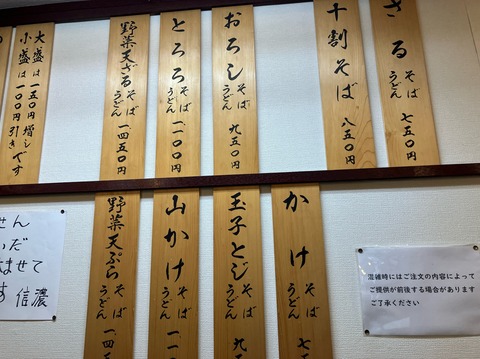 ざる そば うどん 七五〇円
十割そば 八五〇円
おろし そば うどん 九五〇円
とろろ そば うどん 一一〇〇円
野菜天ざる そば うどん 一四五〇円
大盛は一五〇円増し
小盛は一〇〇円引きです
かけ そば うどん
玉子とじ そば うどん 九
山かけ そば うどん 一一
野菜天ぷら そば うどん 一四
混雑時にはご注文の内容によって
ご提供が前後する場合があります
ご了承ください
せん
いだ
ませて
す 信濃